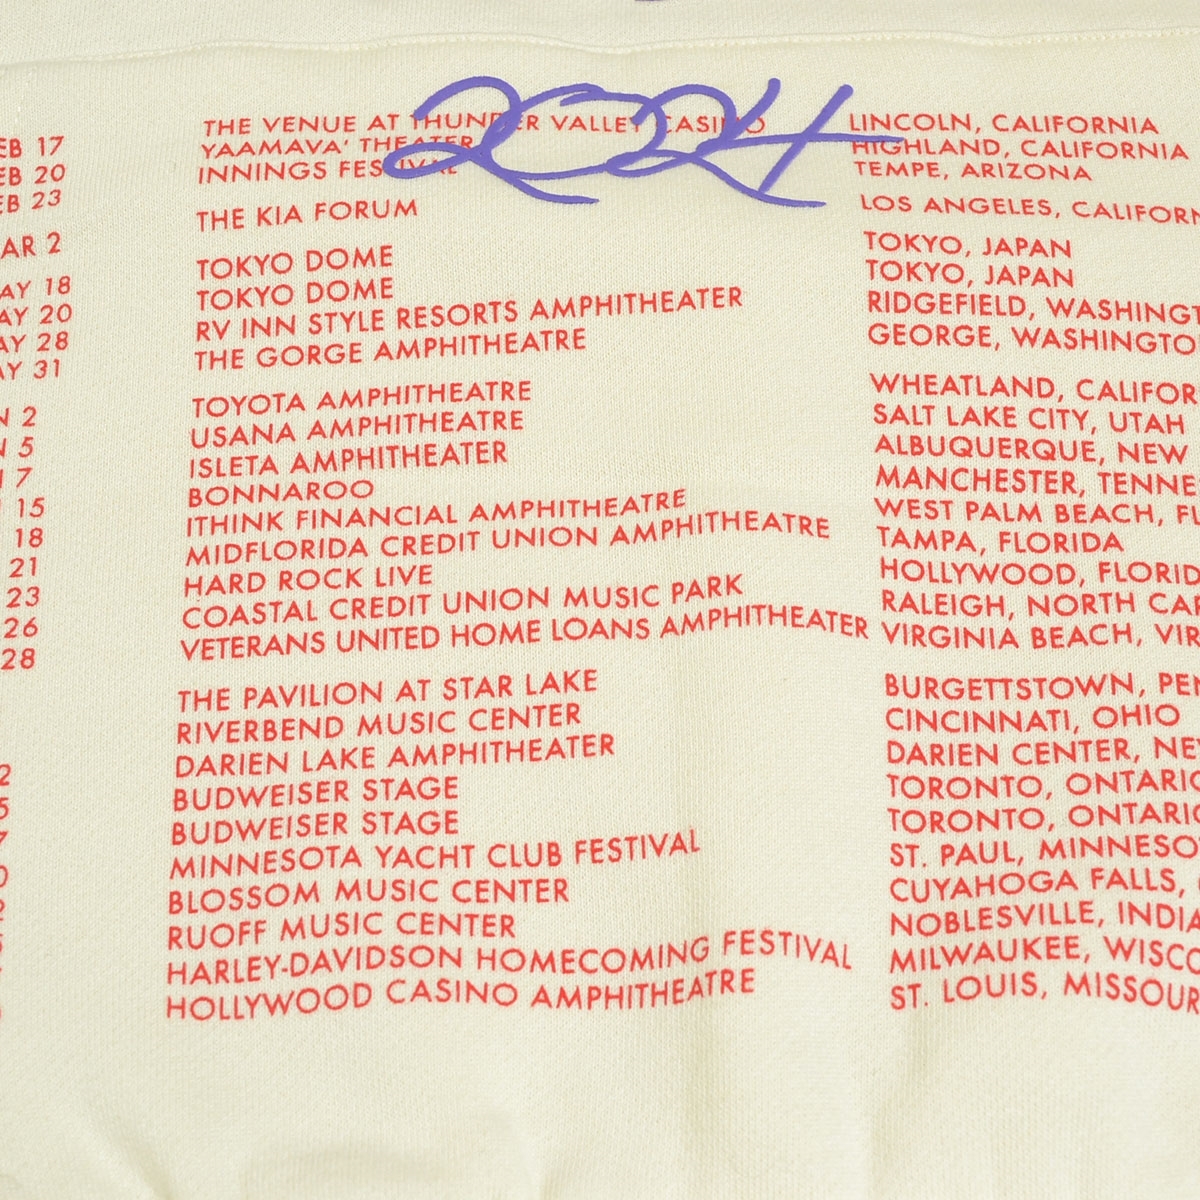 2024
EB 17 THE VENUE AT THUNDER VALLEY CASINO LINCOLN, CALIFORNIA
EB 20 YAAMAVA' THEATER HIGHLAND, CALIFORNIA
EB 23 INNINGS FESTIVAL TEMPE, ARIZONA
AR 2 THE KIA FORUM LOS ANGELES, CALIFORN
AY 18 TOKYO DOME TOKYO, JAPAN
AY 20 TOKYO DOME TOKYO, JAPAN
AY 28 RV INN STYLE RESORTS AMPHITHEATER RIDGEFIELD, WASHINGT
AY 31 THE GORGE AMPHITHEATRE GEORGE, WASHINGTO
N 2 TOYOTA AMPHITHEATRE WHEATLAND, CALIFOR
N 5 USANA AMPHITHEATRE SALT LAKE CITY, UTAH
7 ISLETA AMPHITHEATER ALBUQUERQUE, NEW
15 BONNAROO MANCHESTER, TENNE
18 ITHINK FINANCIAL AMPHITHEATRE WEST PALM BEACH, FL
21 MIDFLORIDA CREDIT UNION AMPHITHEATRE TAMPA, FLORIDA
23 HARD ROCK LIVE HOLLYWOOD, FLORID
26 COASTAL CREDIT UNION MUSIC PARK RALEIGH, NORTH CA
28 VETERANS UNITED HOME LOANS AMPHITHEATER VIRGINIA BEACH, VIR
2 THE PAVILION AT STAR LAKE BURGETTSTOWN, PEN
5 RIVERBEND MUSIC CENTER CINCINNATI, OHIO
7 DARIEN LAKE AMPHITHEATER DARIEN CENTER, NE
0 BUDWEISER STAGE TORONTO, ONTARIO
2 BUDWEISER STAGE TORONTO, ONTARIO
5 MINNESOTA YACHT CLUB FESTIVAL ST. PAUL, MINNESO
BLOSSOM MUSIC CENTER CUYAHOGA FALLS,
RUOFF MUSIC CENTER NOBLESVILLE, INDIA
HARLEY-DAVIDSON HOMECOMING FESTIVAL MILWAUKEE, WISCO
HOLLYWOOD CASINO AMPHITHEATRE ST. LOUIS, MISSOUR